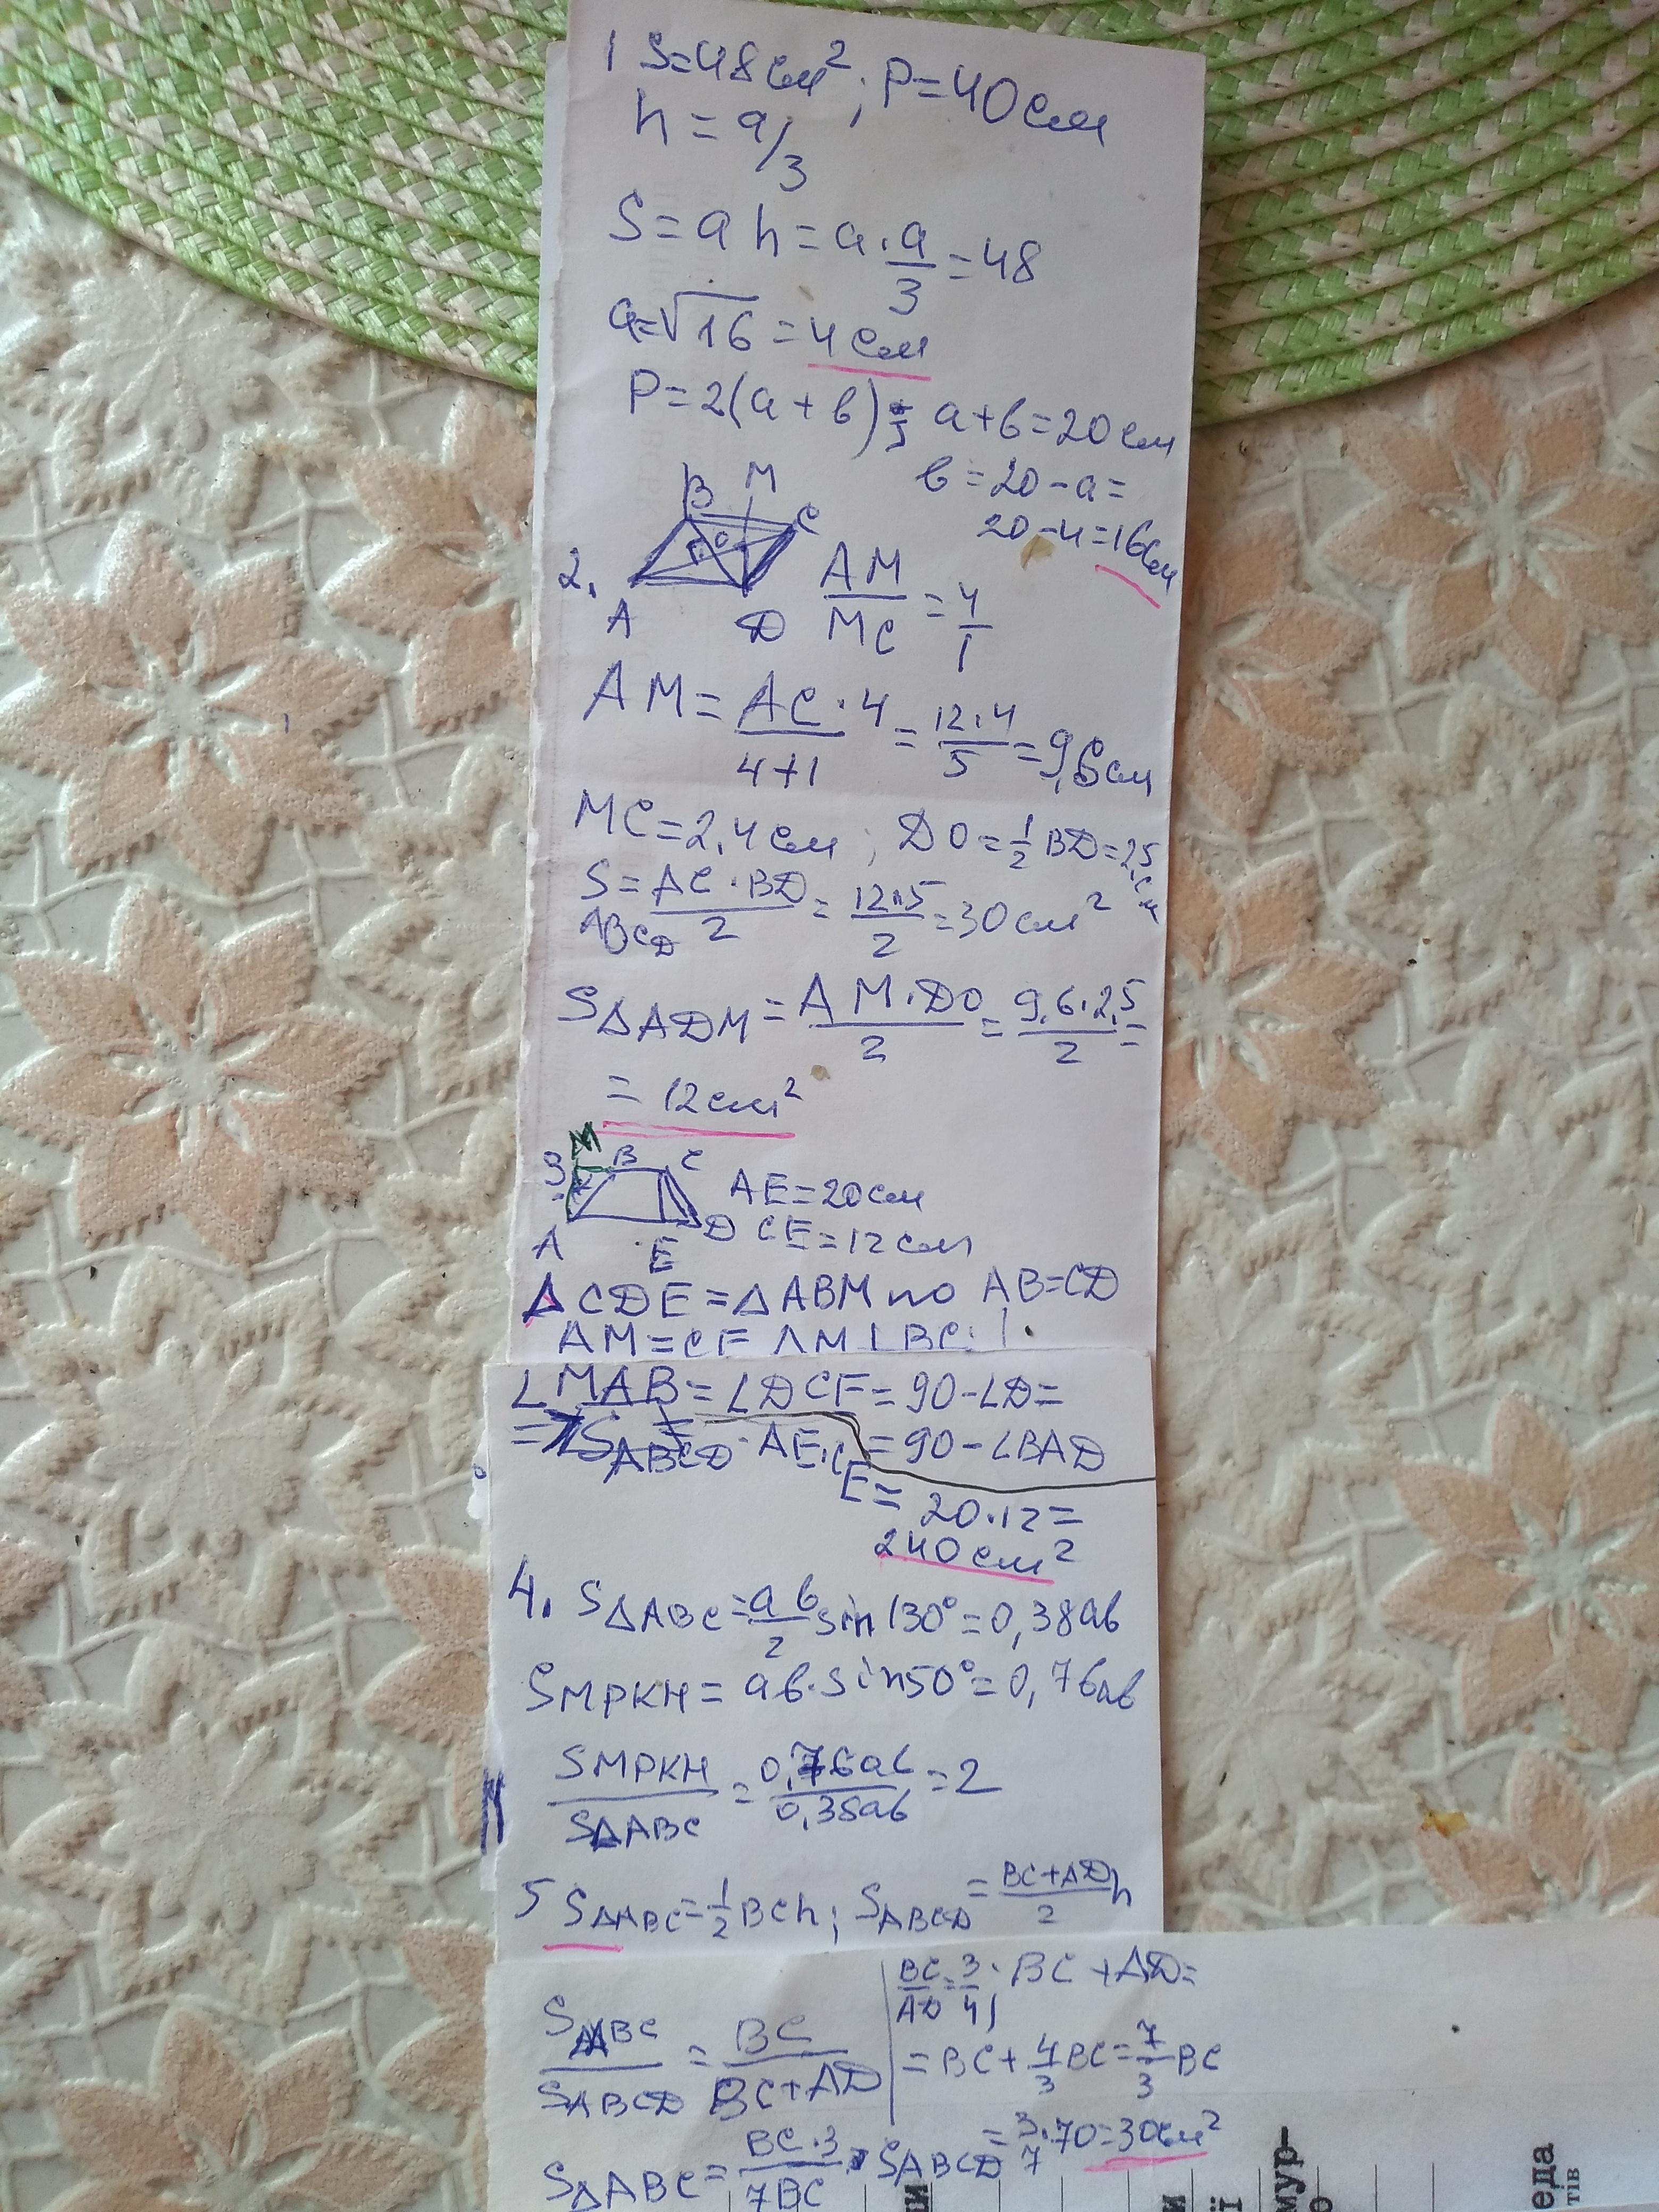 1 S=48см²; P=40см
h = a/3
S = a h = a · a/3 = 48
a=√16 = 4 см
P=2(a+b); a+b=20 см
b = 20-a=
20-4=16см
B M C
O
2. AM/MC = 4/1
A D
AM = AC·4/4+1 = 12·4/5 = 9,6см
MC=2,4см; DO=1/2 BD=2,5 см
S ABCD = AC·BD/2 = 12·5/2 = 30 см²
S△ADM = AM·DO/2 = 9,6·2,5/2 =
= 12см²
M
3. B C AE=20см
A E D CE=12см
△CDE=△ABM по AB=CD
AM=CE AM⊥BC;
∠MAB=∠DCE=90-∠D=
=90-∠BAD
S ABCD = AE·CE=
20·12=
240 см²
4. S△ABC = ab/2 sin130°=0,38ab
SMPKH = ab·sin50°=0,76ab
SMPKH/S△ABC = 0,76ab/0,38ab = 2
5 S△ABC=1/2 BCh; SABCD = BC+AD/2 h
S△ABC/SABCD = BC/BC+AD
BC/AD = 3/4; BC+AD=
= BC + 4/3 BC = 7/3 BC
S△ABC = BC·3/7BC · SABCD = 3/7·70=30см²
мур-
еда
тів